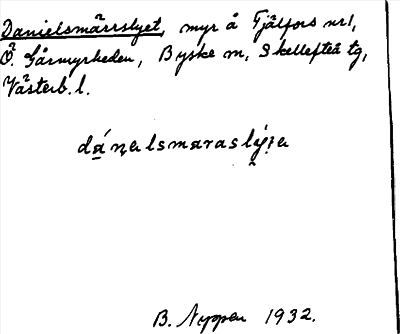 Danielsmärrslyet, myr å Fjälfors nr 1,
Ö. Gårmyrheden, Byske sn, Skellefteå tg,
Västerb. l.
dánalsmaraslýia
B. Nyppen 1932.